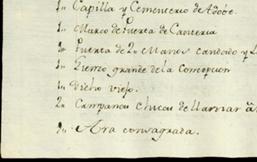 1„ Capilla y Cementerio de Adobe.
1„ Marco de Puerta de Canteria
1„ Puerta de 2 Manos candado y
1„ Lienzo grande de la Concepcion
1„ Dicho viejo.
2„ Campanas chicas de llamar á
1„ Ara consagrada.